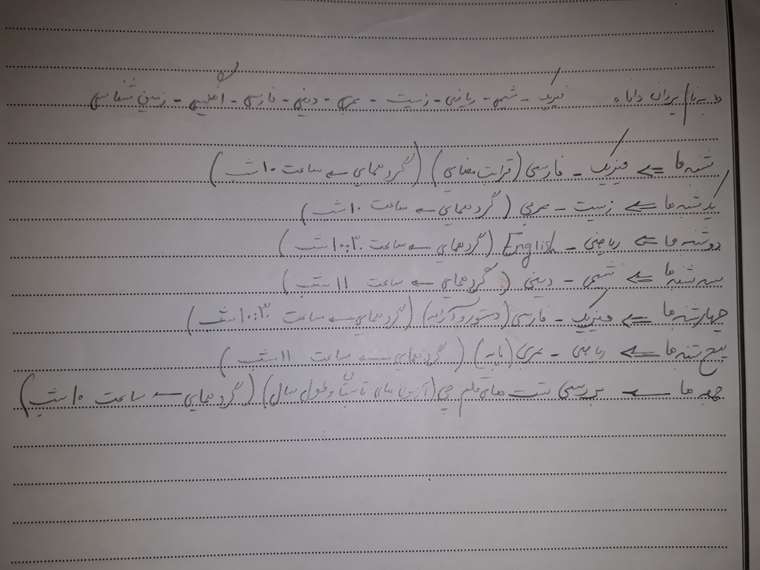 فیزیک - شیمی - ریاضی - زیست - عربی - دینی - فارسی - انگلیسی - زمین شناسی
شنبه ها ⇐ فیزیک - فارسی (قرابت معنایی) (گردهمایی ⇐ ساعت ۱۰ شب)
یکشنبه ها ⇐ زیست - عربی (گردهمایی ⇐ ساعت ۱۰ شب)
دوشنبه ها ⇐ ریاضی - English (گردهمایی ⇐ ساعت ۱۰:۳۰ شب)
سه شنبه ها ⇐ شیمی - دینی (گردهمایی ⇐ ساعت ۱۱ شب)
چهارشنبه ها ⇐ فیزیک - فارسی (دستور و آرایه) (گردهمایی ⇐ ساعت ۱۰:۳۰ شب)
پنج شنبه ها ⇐ ریاضی - عربی (پایه) (گردهمایی ⇐ ساعت ۱۱ شب)
جمعه ها ⇐ بررسی تست های قلم چی (آزمون های تابستان و طول سال) (گردهمایی ⇐ ساعت ۱۰ شب)